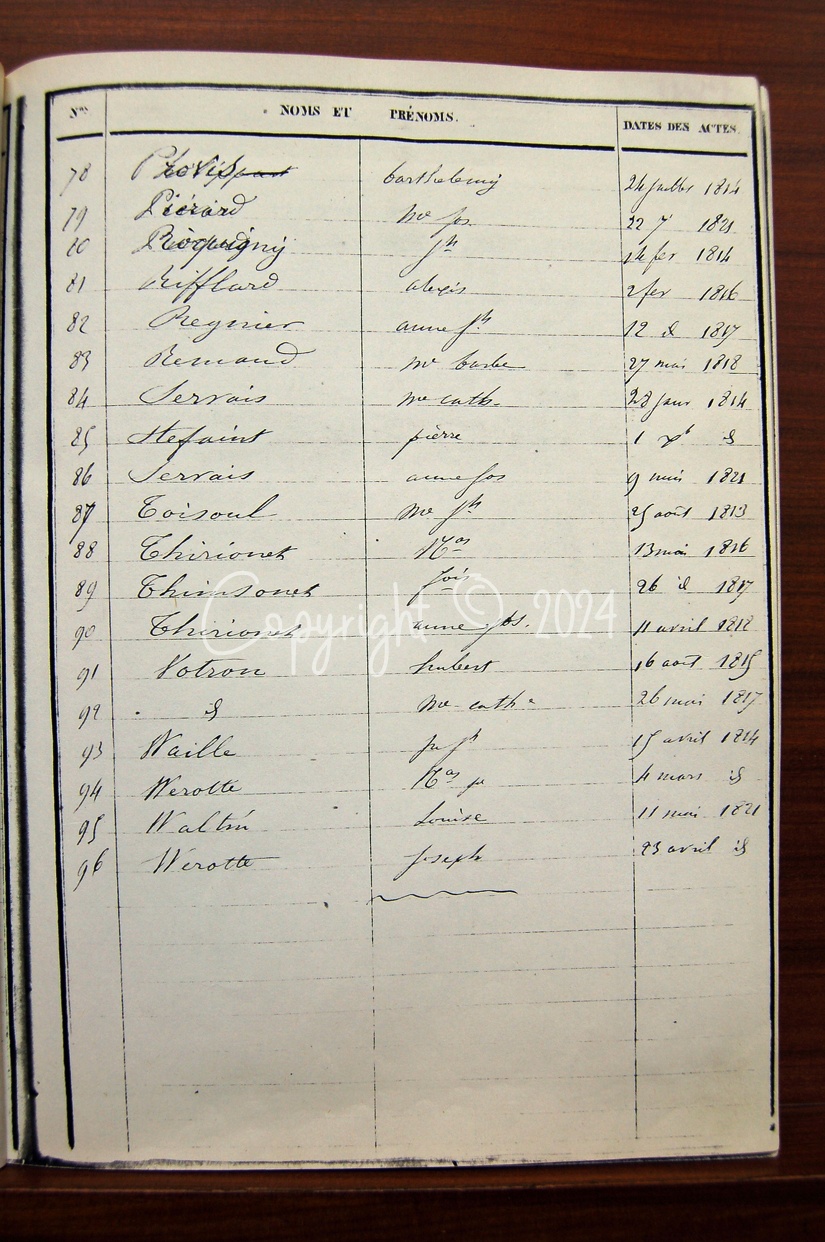 Nos NOMS ET PRÉNOMS. DATES DES ACTES.
78 barthelemy 24 juillet 1814
79 Piérard me jos 22 7 1821
80 jh 14 fer 1814
81 Rifflard alexis 2 fer 1816
82 Regnier anne jh 12 id 1817
83 Remand me barbe 27 mai 1818
84 Servais me cath. 28 janv 1814
85 Stefaint pierre 1 id
86 Servais anne jos 9 mai 1821
87 Toisoul me jh 25 août 1813
88 Thirionet Nas 13 mai 1816
89 Thimsonet fois 26 id 1817
90 Thirionet anne jos. 11 avril 1818
91 Votron hubert 16 août 1815
92 id me cathe 26 mai 1817
93 Waille jh 15 avril 1814
94 Werotte Nas 4 mars id
95 Waltin Louise 11 mai 1821
96 Werotte Joseph 23 avril id
Copyright © 2024